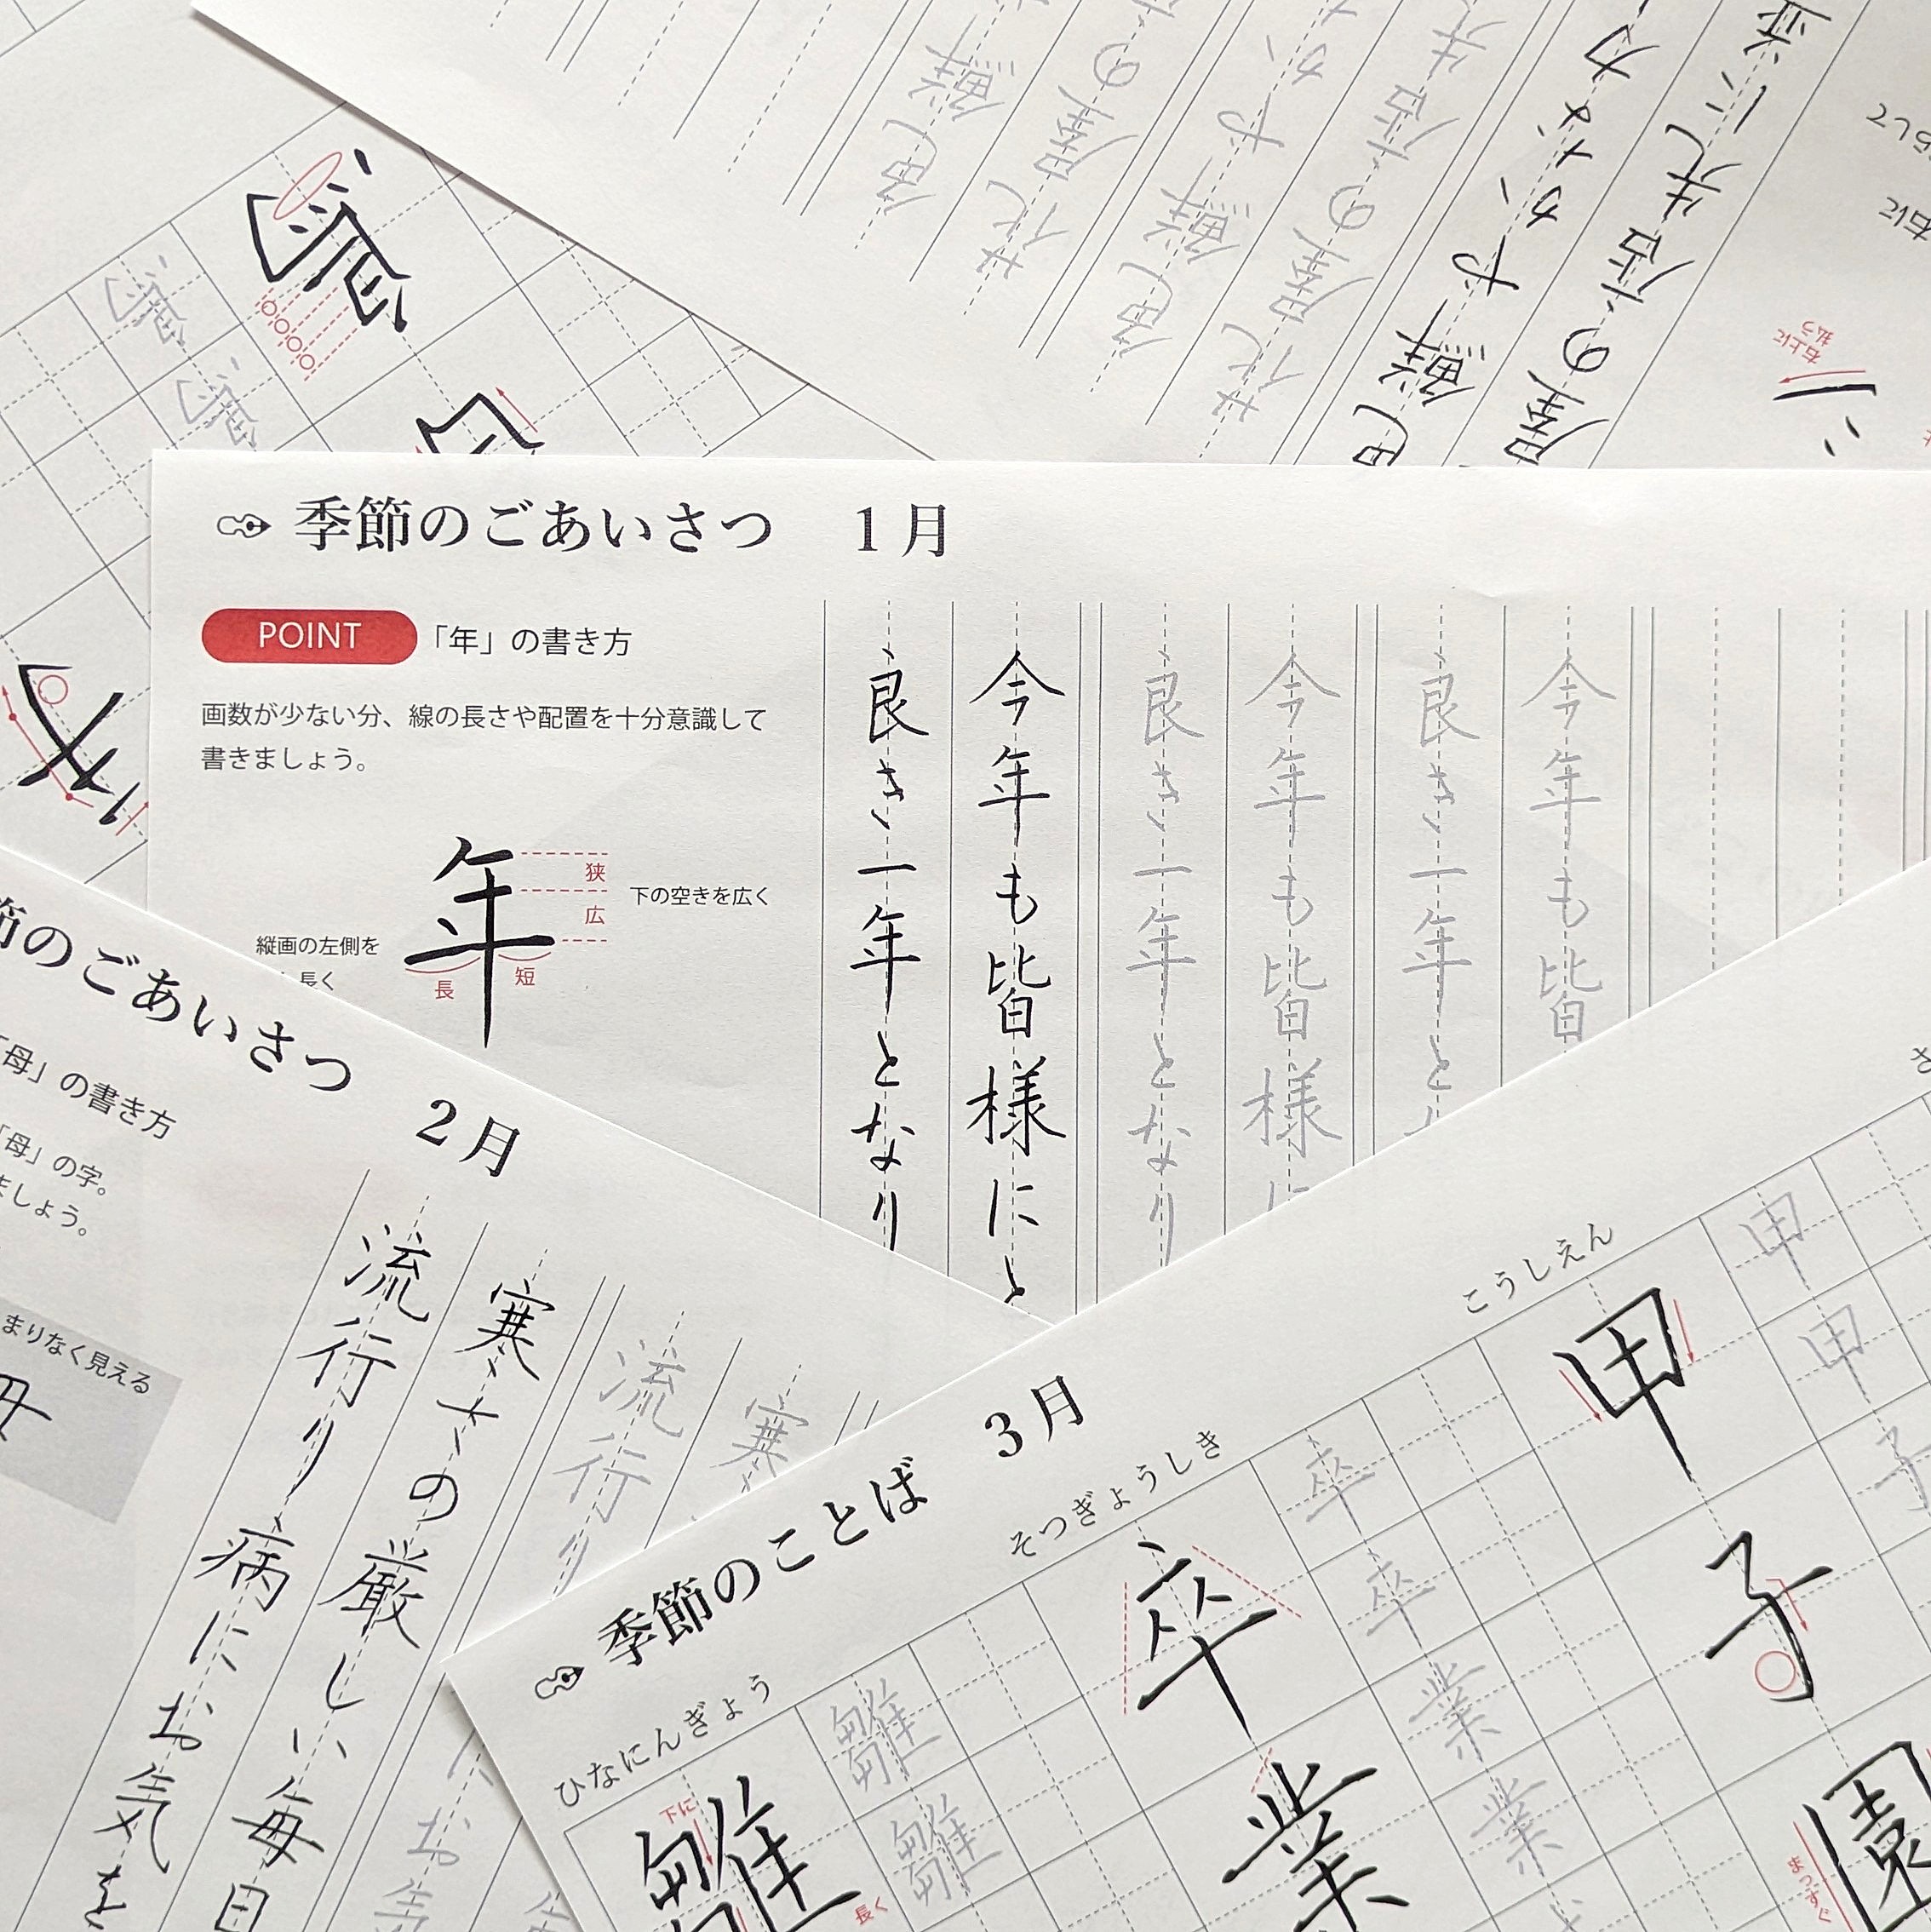 季節のごあいさつ 1月
POINT 「年」の書き方
画数が少ない分、線の長さや配置を十分意識して
書きましょう。
年
狭
広
下の空きを広く
縦画の左側を
長く
長
短
今年も皆様にと
良き一年となり
今年も皆様に
良き一年となり
今年も皆
良き一年と
節のごあいさつ 2月
「母」の書き方
「母」の字。
ましょう。
まりなく見える
寒さの厳しい毎日
流行り病にお気を
寒
流行り
にお気
季節のことば 3月
こうしえん
甲子園
甲
甲
子
まっすぐ
そつぎょうしき
卒業
卒
卒
業
業
ひなにんぎょう
雛
下に
長く
雛
雛
花屋の店先に並
色鮮やかな
花屋の店先
色鮮やか
花屋の店
色鮮
右上に
払う